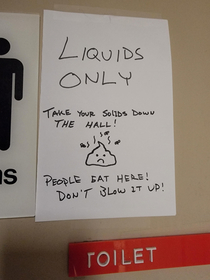 LIQUIDS
ONLY
TAKE YOUR SOLIDS DOWN
THE HALL!
PEOPLE EAT HERE!
DON'T BLOW IT UP!
ns
TOILET